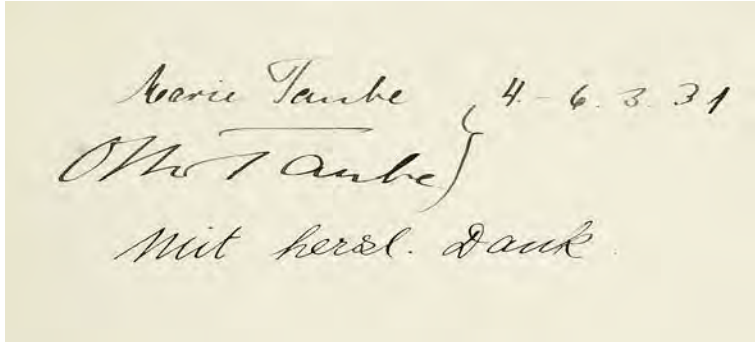 Marie Taube } 4.-6.3.31
Otto Taube
Mit herzl. Dank.